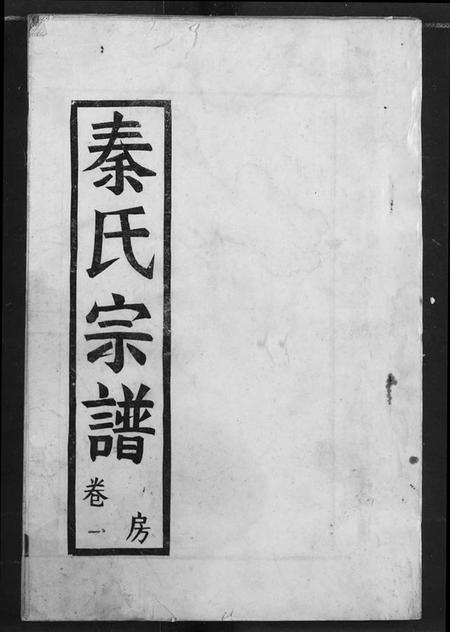 秦氏宗譜
卷一
房